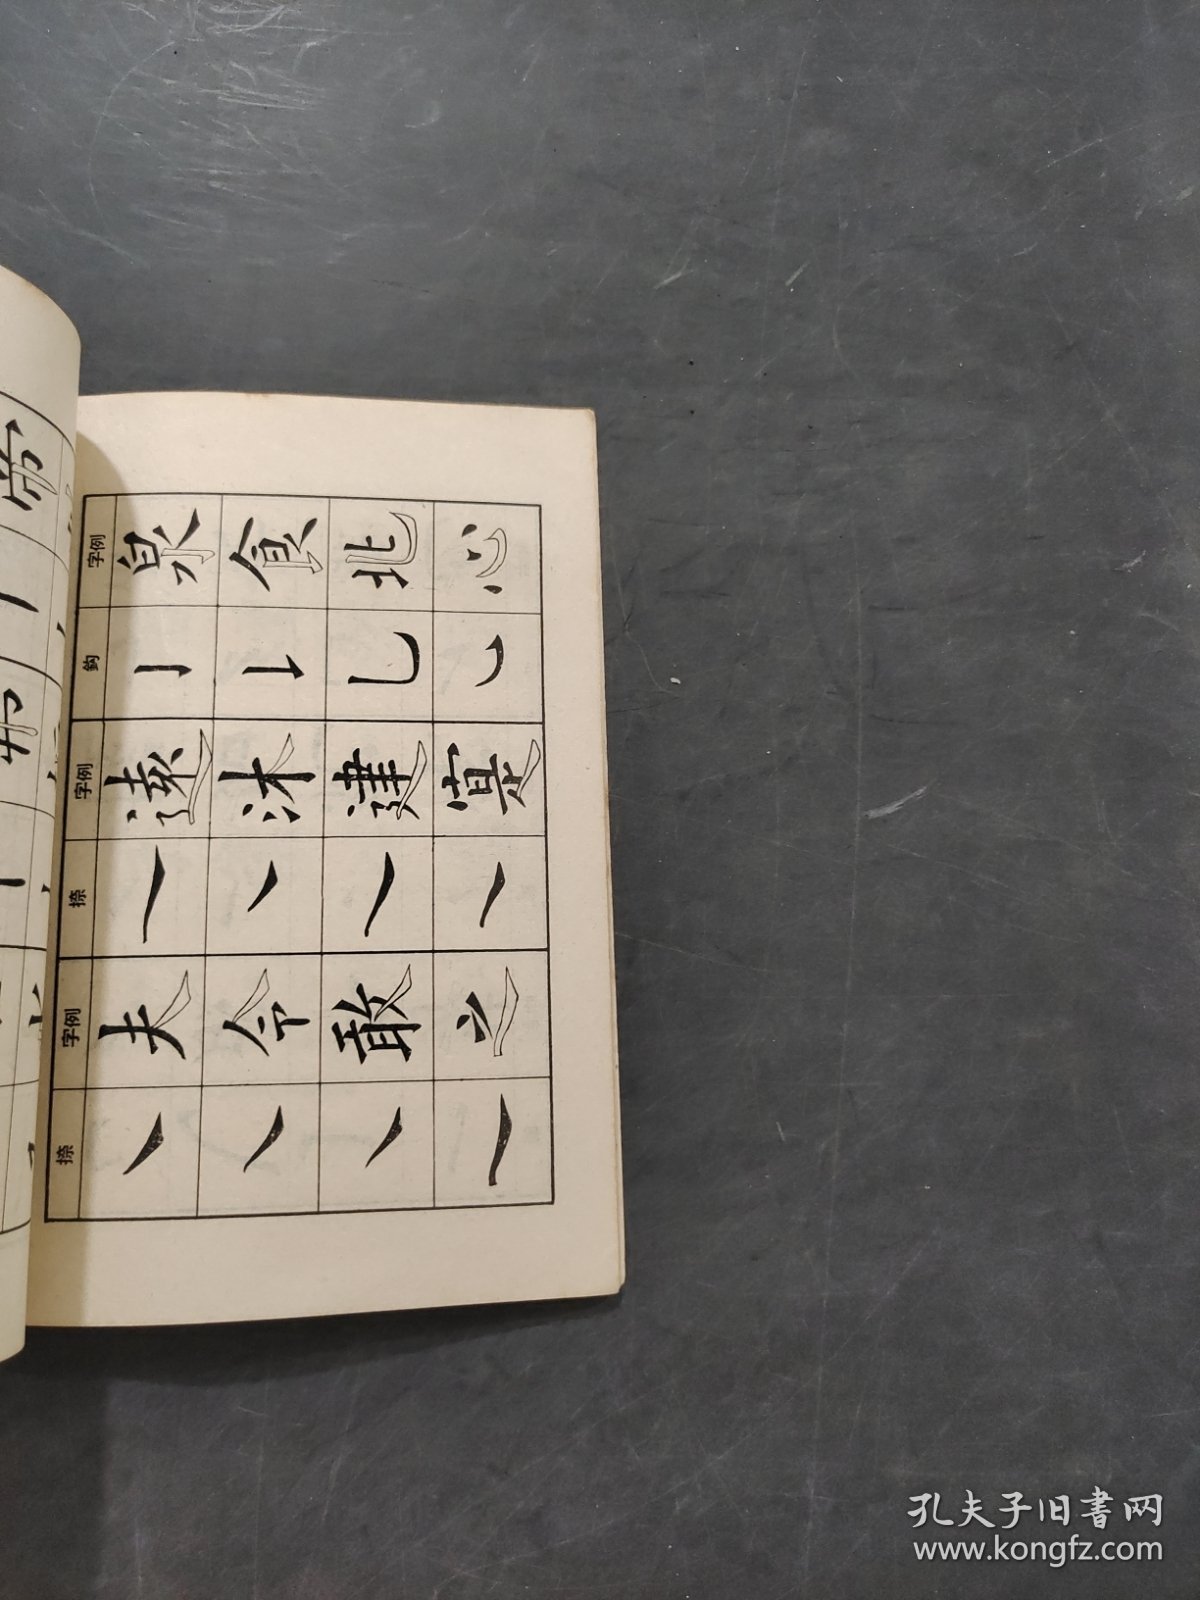 捺 字例 捺 字例 鈎 字例
夫 遠 泉
令 沐 食
敢 北
之 寔 心
帝
孔夫子旧书网
www.kongfz.com